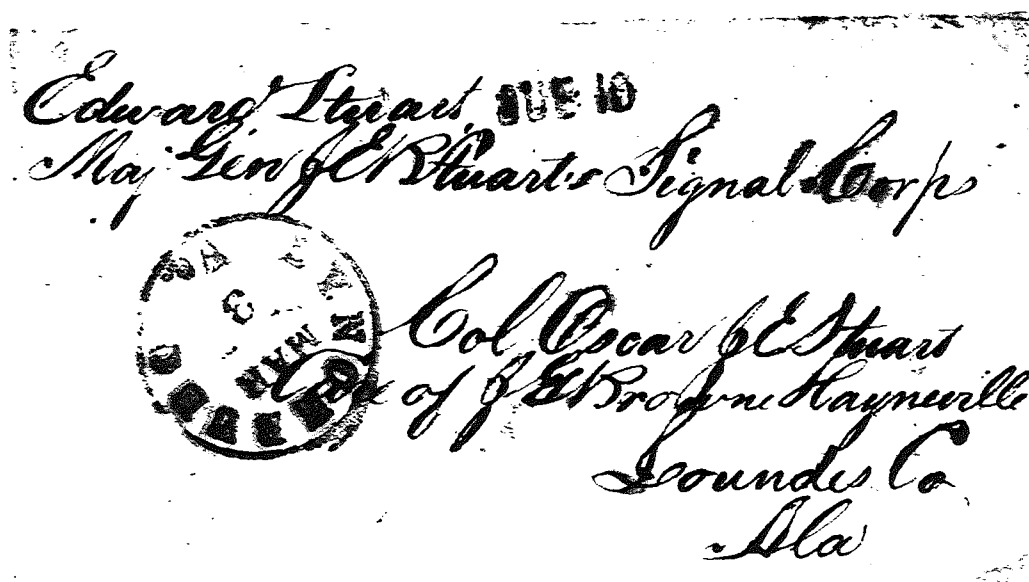 Edward Stuart, DUE 10
Maj Gen J E B Stuart's Signal Corps
Col Oscar J E Stuart
Care of J E Browne Hayneville
Loundes Co
Ala
MAR
3